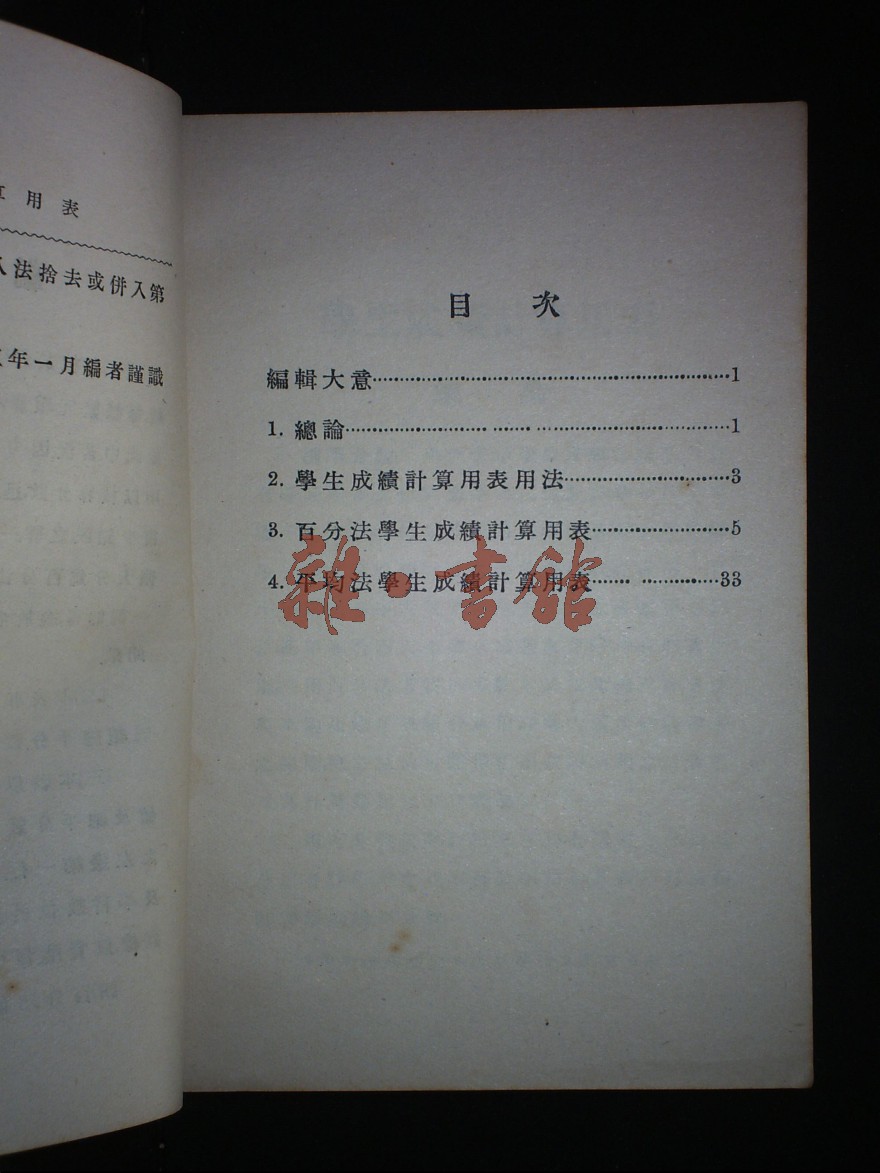 用表
法捨去或併入第
年一月編者謹識
目次
編輯大意…………1
1. 總論…………1
2. 學生成績計算用表用法…………3
3. 百分法學生成績計算用表…………5
4. 平均法學生成績計算用表…………33
雜·書館